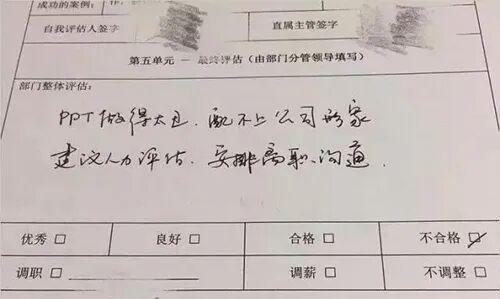 成功的案例:
自我评估人签字 直属主管签字
第五单元 — 最终评估(由部门分管领导填写)
部门整体评估:
PPT做得太丑,配不上公司形象
建议人力评估,安排离职沟通.
优秀 □ 良好 □ 合格 □ 不合格 ☑
调职 □ 调薪 □ 不调整 □